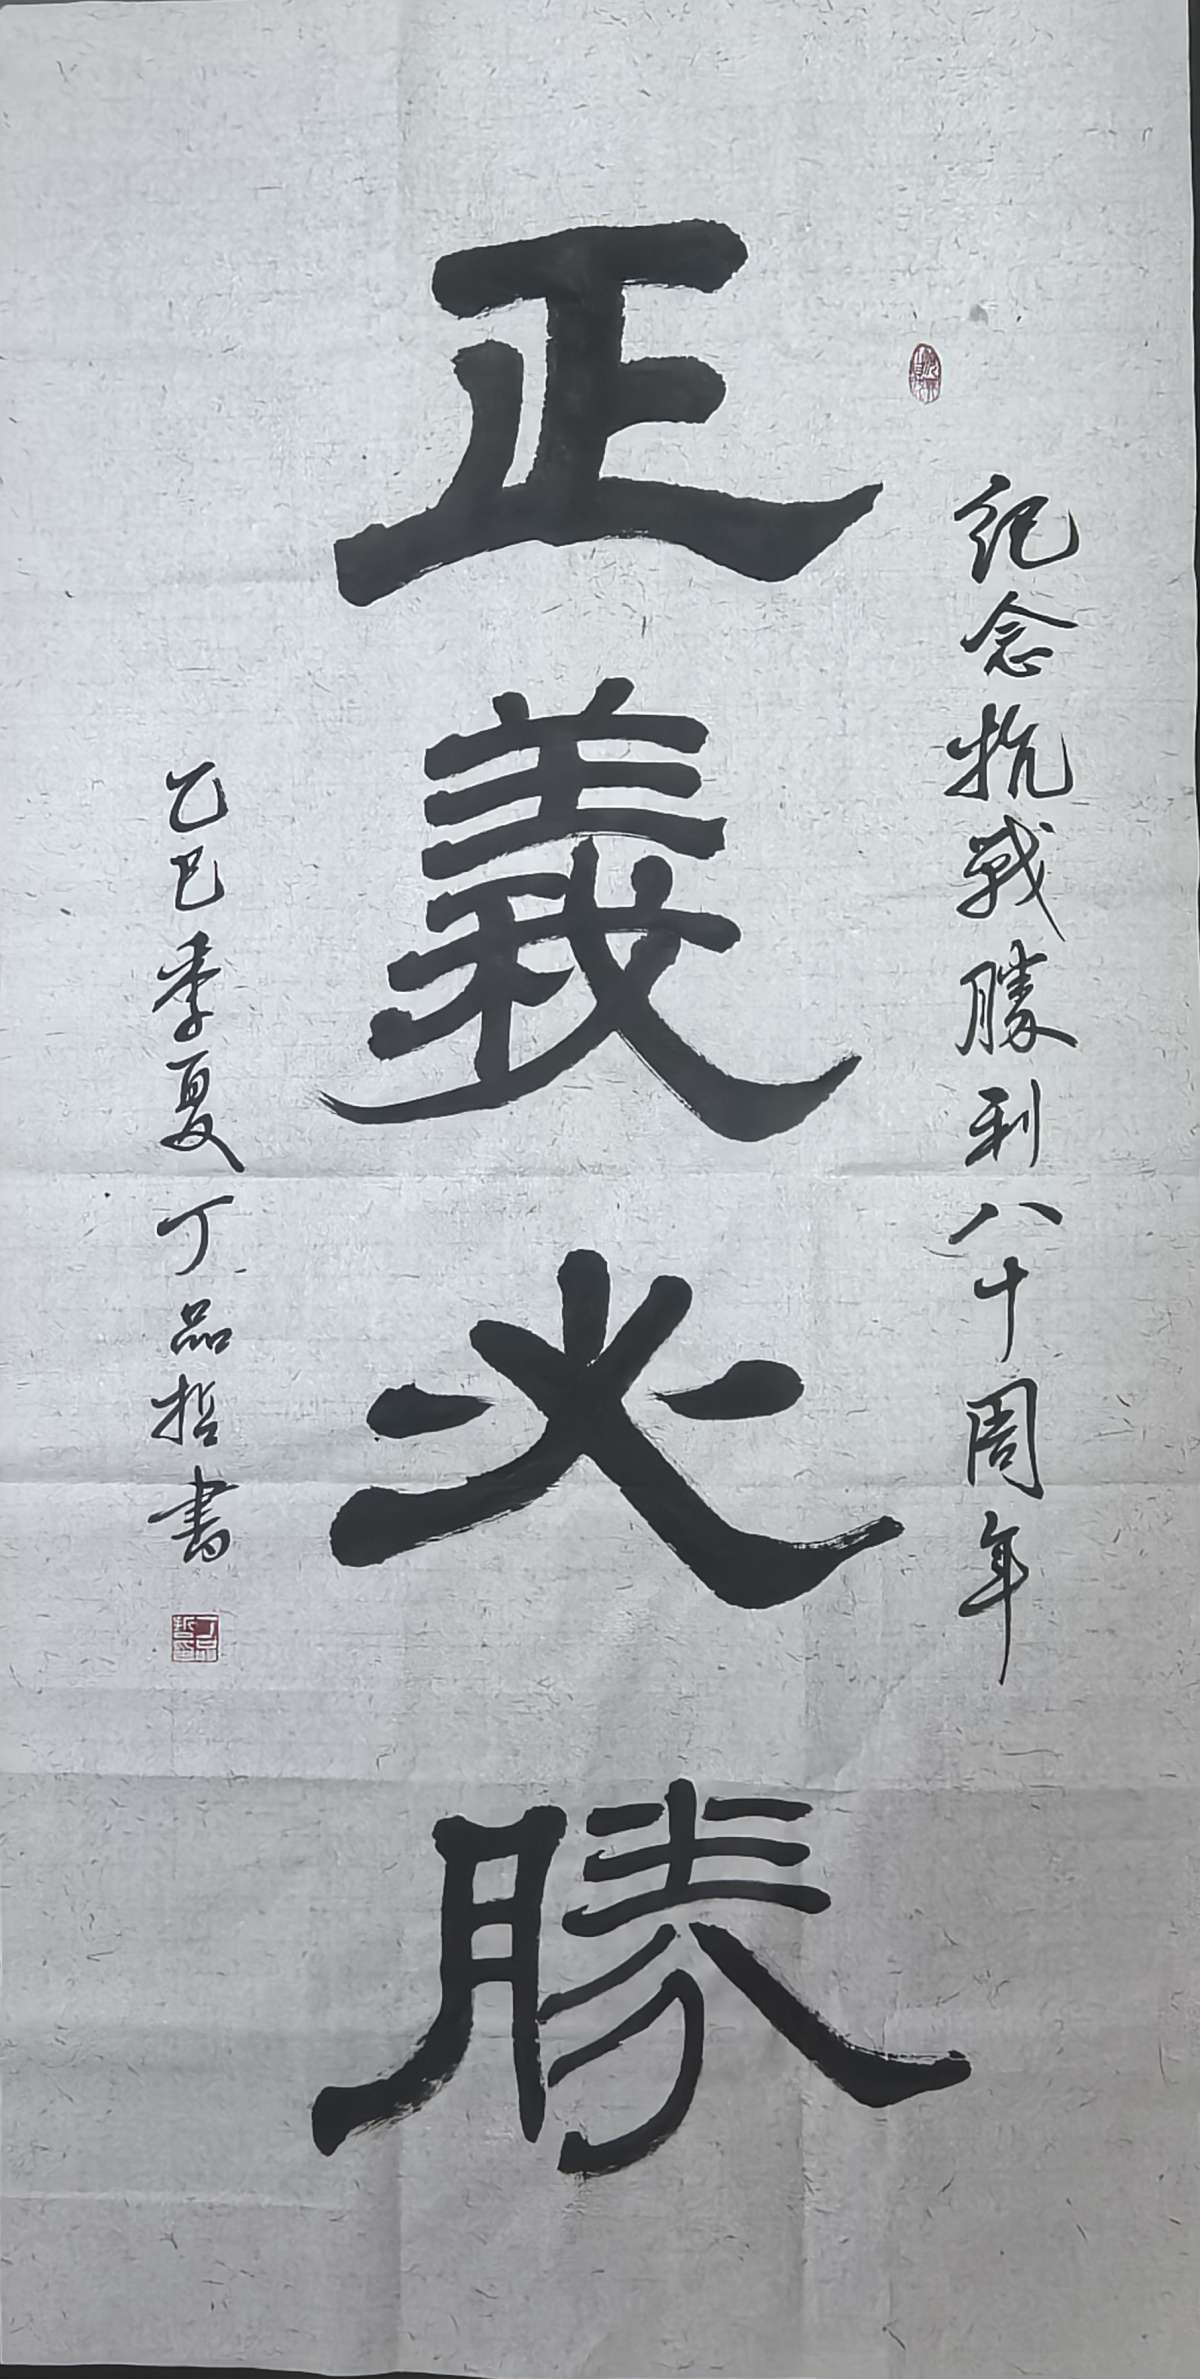 紀念抗戰勝利八十周年
正義必勝
乙巳季夏丁品哲書